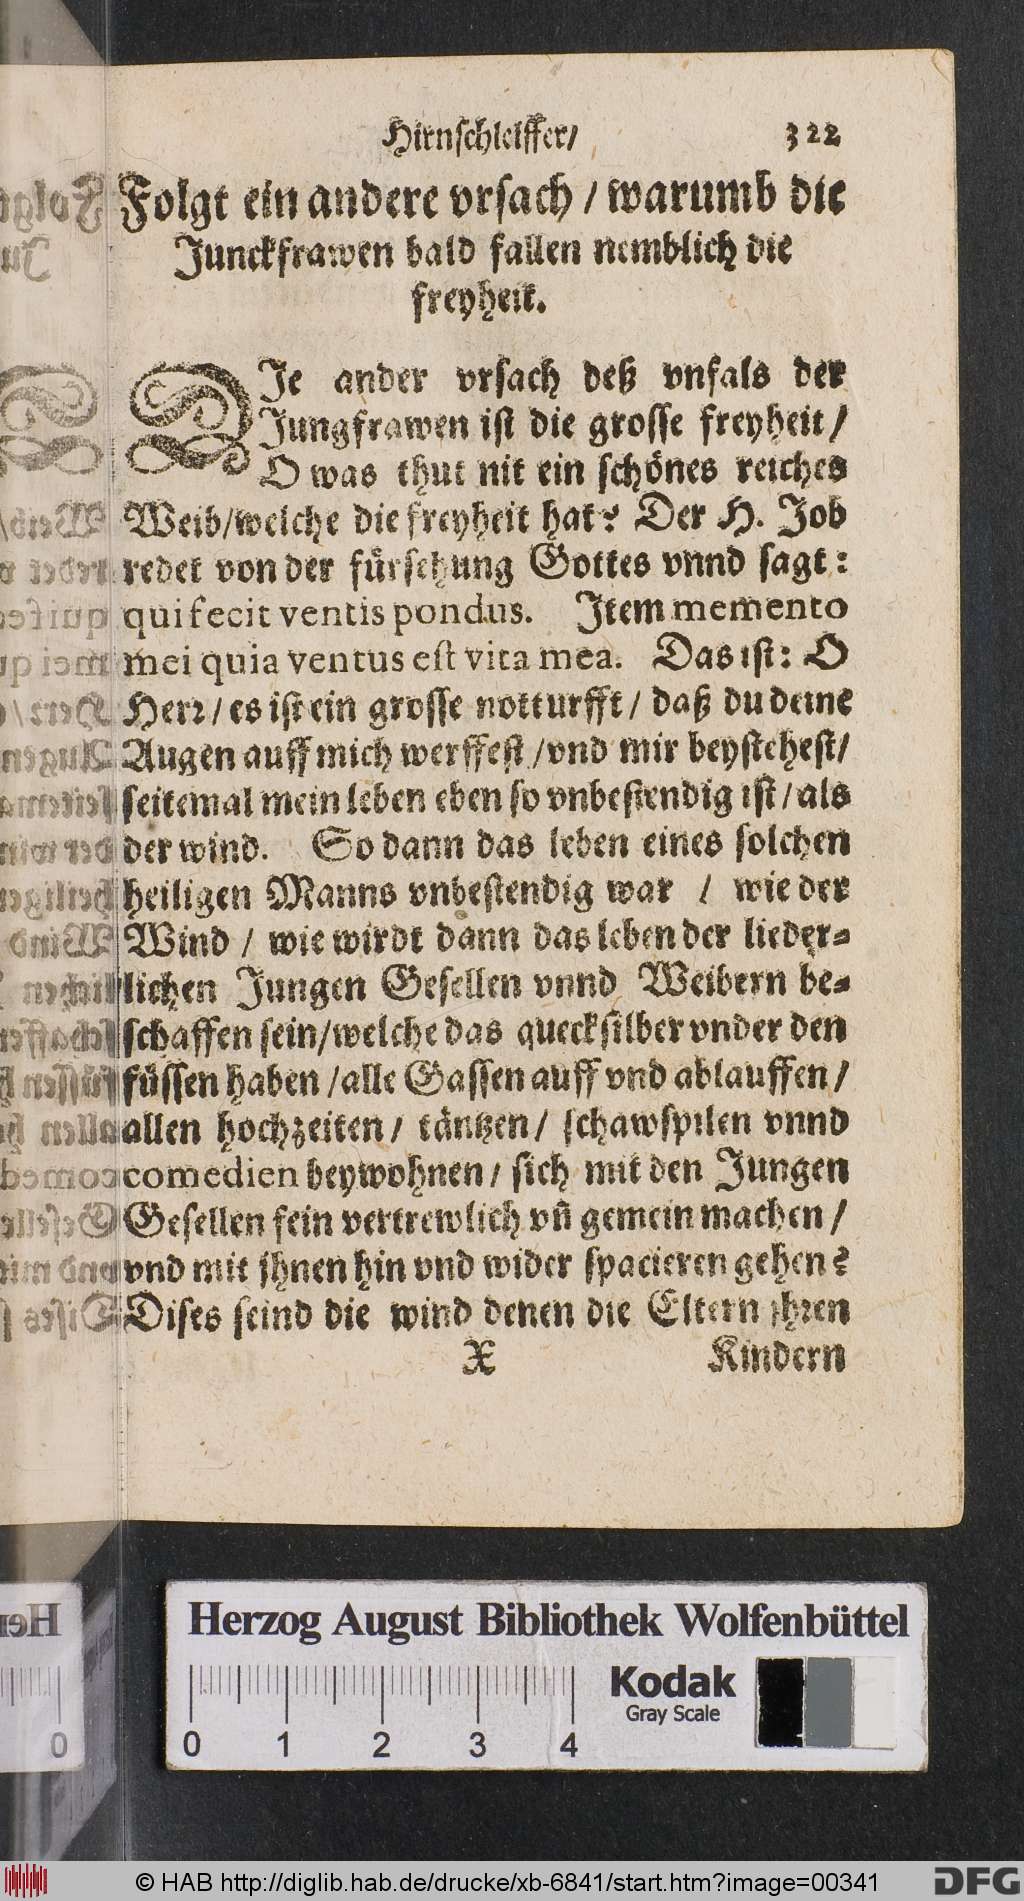 Hirnschleiffer/ 322
Folgt ein andere vrsach / warumb die
Junckfrawen bald fallen nemblich die
freyheit.
DJe ander vrsach deß vnfals der
Jungfrawen ist die grosse freyheit /
O was thut nit ein schönes reiches
Weib/welche die freyheit hat? Der H. Job
redet von der fürsehung Gottes vnnd sagt:
qui fecit ventis pondus. Item memento
mei quia ventus est vita mea. Das ist: O
Herr / es ist ein grosse notturfft / daß du deine
Augen auff mich werffest /vnd mir beystehest/
seitemal mein leben eben so vnbestendig ist / als
der wind. So dann das leben eines solchen
heiligen Manns vnbestendig war / wie der
Wind / wie wirdt dann das leben der lieder-
lichen Jungen Gesellen vnnd Weibern be-
schaffen sein/welche das quecksilber vnder den
füssen haben /alle Gassen auff vnd ablauffen /
allen hochzeiten / täntzen / schawspilen vnnd
comedien beywohnen / sich mit den Jungen
Gesellen fein vertrewlich vñ gemein machen /
vnd mit jhnen hin vnd wider spacieren gehen?
Dises seind die wind denen die Eltern jhren
X Kindern
Herzog August Bibliothek Wolfenbüttel
Kodak
Gray Scale
0 1 2 3 4
© HAB http://diglib.hab.de/drucke/xb-6841/start.htm?image=00341
DFG